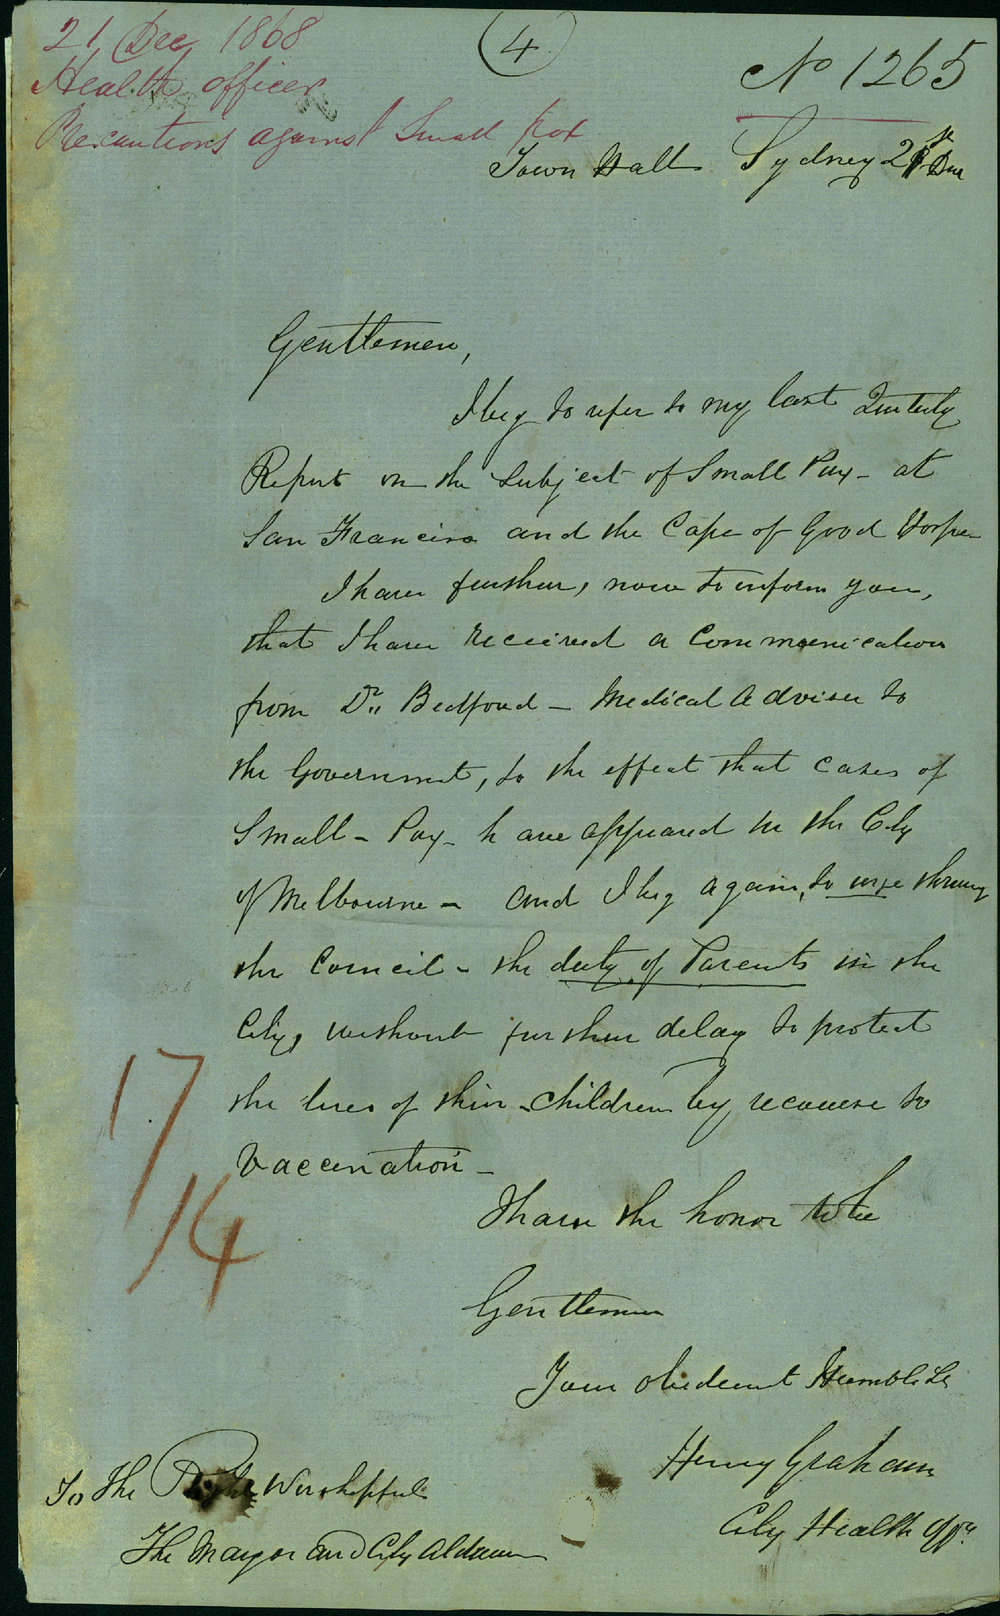 21 Dec 1868
Health officer
Precautions against Small pox
(4)
No 1265
Town Hall Sydney 21st Dec
Gentlemen,
I beg to refer to my last Quarterly
Report on the subject of Small Pox - at
San Francisco and the Cape of Good Hope
I have further, now to inform you,
that I have received a Communication
from Dr. Bedford - Medical Adviser to
the Government, to the effect that cases of
Small - Pox - have appeared in the City
of Melbourne - and I beg again, to urge through
the Council - the duty of Parents in the
City, without further delay to protect
the lives of their children by recourse to
Vaccination -
I have the honor to be
Gentlemen
Your obedient Humble St
Henry Graham
City Health Offr.
To The Right Worshipful
The Mayor and City Aldermen
17/14